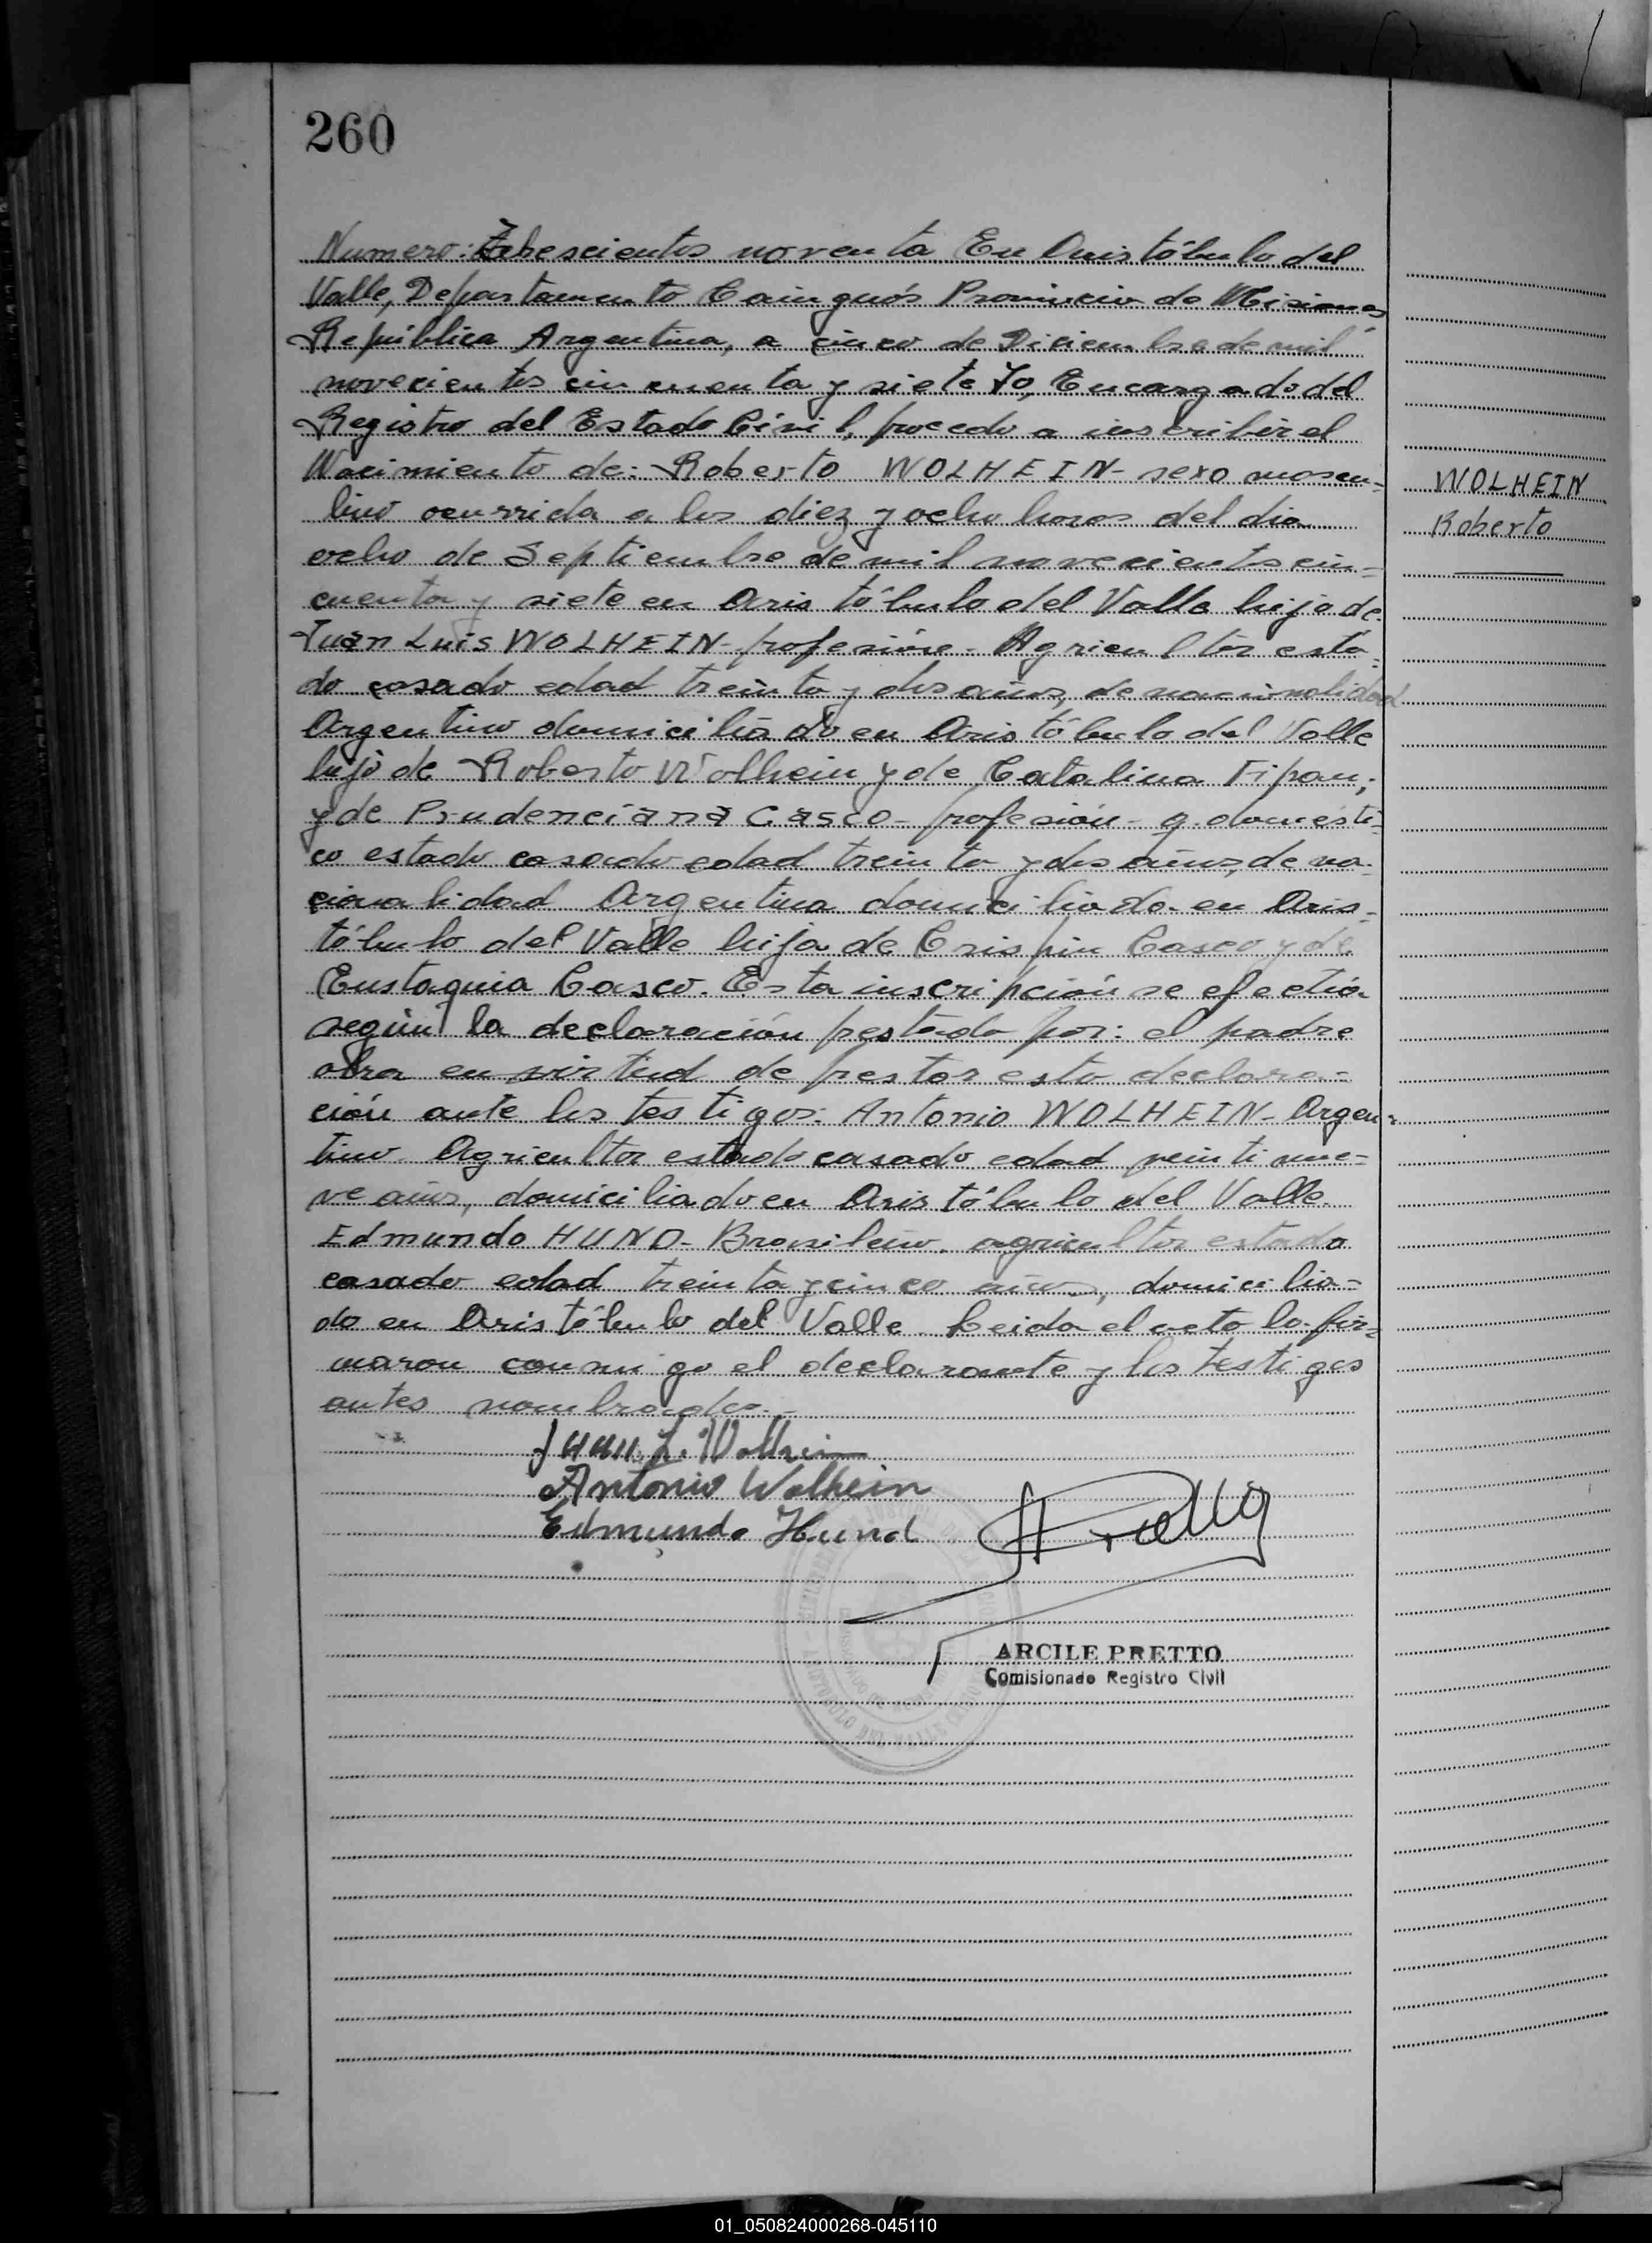 260
Numero: Trescientos noventa En Aristóbulo del
Valle, Departamento Cainguás Provincia de Misiones
República Argentina, a cinco de Diciembre de mil
novecientos cincuenta y siete Yo, Encargado del
Registro del Estado Civil, procedo a inscribir el
Nacimiento de: Roberto WOLHEIN- sexo mascu=
WOLHEIN
lino ocurrida a los diez y ocho horas del dia
Roberto
ocho de Septiembre de mil novecientos cin=
cuenta y siete en Aristóbulo del Valle hijo de
Juan Luis WOLHEIN- profesión- Agricultor esta=
do casado edad treinta y dos años, de nacionalidad
Argentino domiciliado en Aristóbulo del Valle
hijo de Roberto Wolhein y de Catalina Fipan;
y de Prudenciana Casco- profesión- q. domésti=
co estado casado edad treinta y dos años, de na=
cionalidad Argentina domiciliada en Aris=
tóbulo del Valle hija de Crispin Casco y de
Eustaquia Casco. Esta inscripción se efectúa
según la declaración prestada por: el padre
obra en virtud de prestar esta declara=
ción ante los testigos: Antonio WOLHEIN- Argen=
tino Agricultor estado casado edad veintinue=
ve años, domiciliado en Aristóbulo del Valle.
Edmundo HUND- Brasileño. agricultor estado
casado edad treinta y cinco años, domicilia=
do en Aristóbulo del Valle. Leida el acta la fir=
maron conmigo el declarante y los testigos
antes nombrados.-
Juan L. Wolhein
Antonio Wolhein
Edmundo Hund
ARCILE PRETTO
Comisionado Registro Civil
01_050824000268-045110